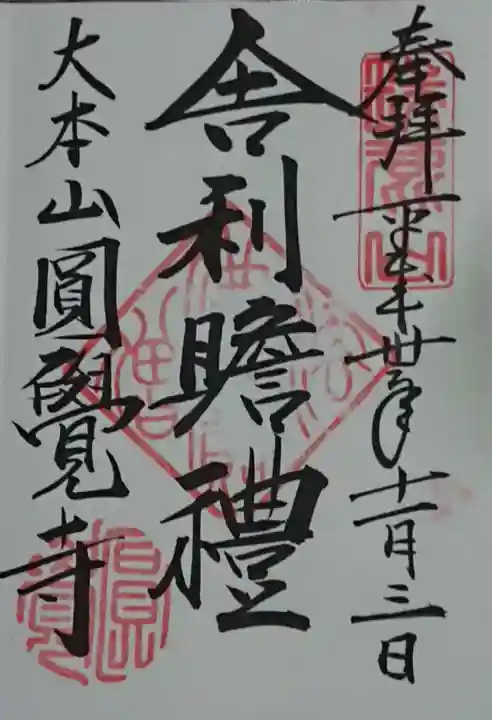 奉拝 平成卅年十一月三日
舎利瞻禮
大本山圓覺寺